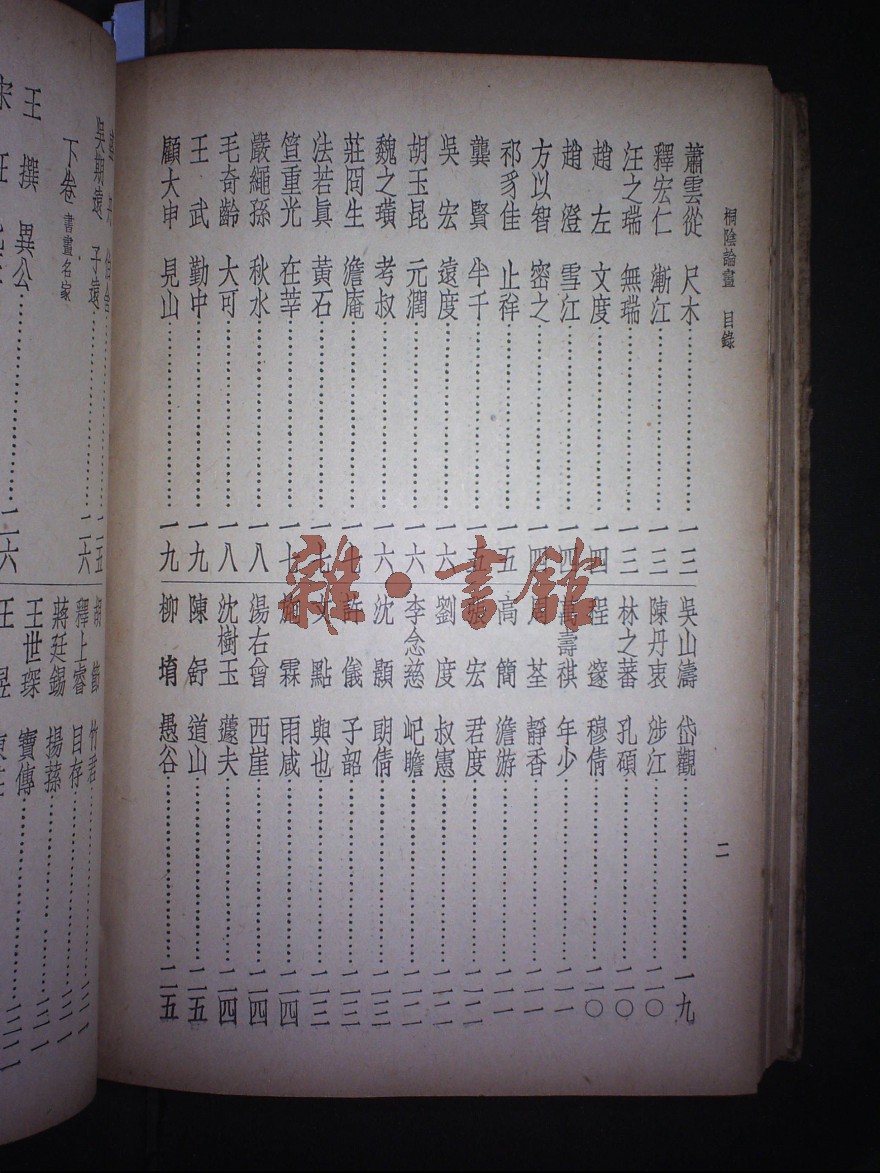 桐陰論畫 目錄
蕭雲從 尺木……一三
釋宏仁 漸江……一三
汪之瑞 無瑞……一三
趙左 文度……一四
趙澄 雪江……一四
方以智 密之……一四
祁豸佳 止祥……一五
龔賢 半千……一五
吳宏 遠度……一六
胡玉昆 元潤……一六
魏之璜 考叔……一六
莊冏生 澹庵……一七
法若眞 黃石……一七
笪重光 在莘……一七
嚴繩孫 秋水……一八
毛奇齡 大可……一八
王武 勤中……一九
顧大申 見山……一九
吳山濤 岱觀……一九
陳丹衷 涉江……二〇
林之蕃 孔碩……二〇
程邃 穆倩……二〇
萬壽祺 年少……二一
周荃 靜香……二一
高簡 澹游……二一
張宏 君度……二二
劉度 叔憲……二二
李念慈 屺瞻……二二
沈顥 朗倩……二三
許儀 子韶……二三
文點 與也……二三
施霖 雨咸……二四
湯右曾 西崖……二四
沈樹玉 蘧夫……二四
陳舒 道山……二五
柳堉 愚谷……二五
二
吳期遠 子遠……二六
下卷 書畫名家
王撰 異公……二六
胡節 竹君
釋上睿 目存
蔣廷錫 揚蓀
王世琛 寶傳
雜·書館